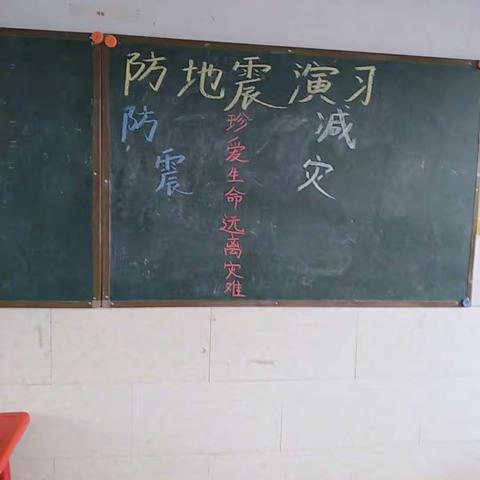 防地震演习
防震
减灾
珍爱生命远离灾难